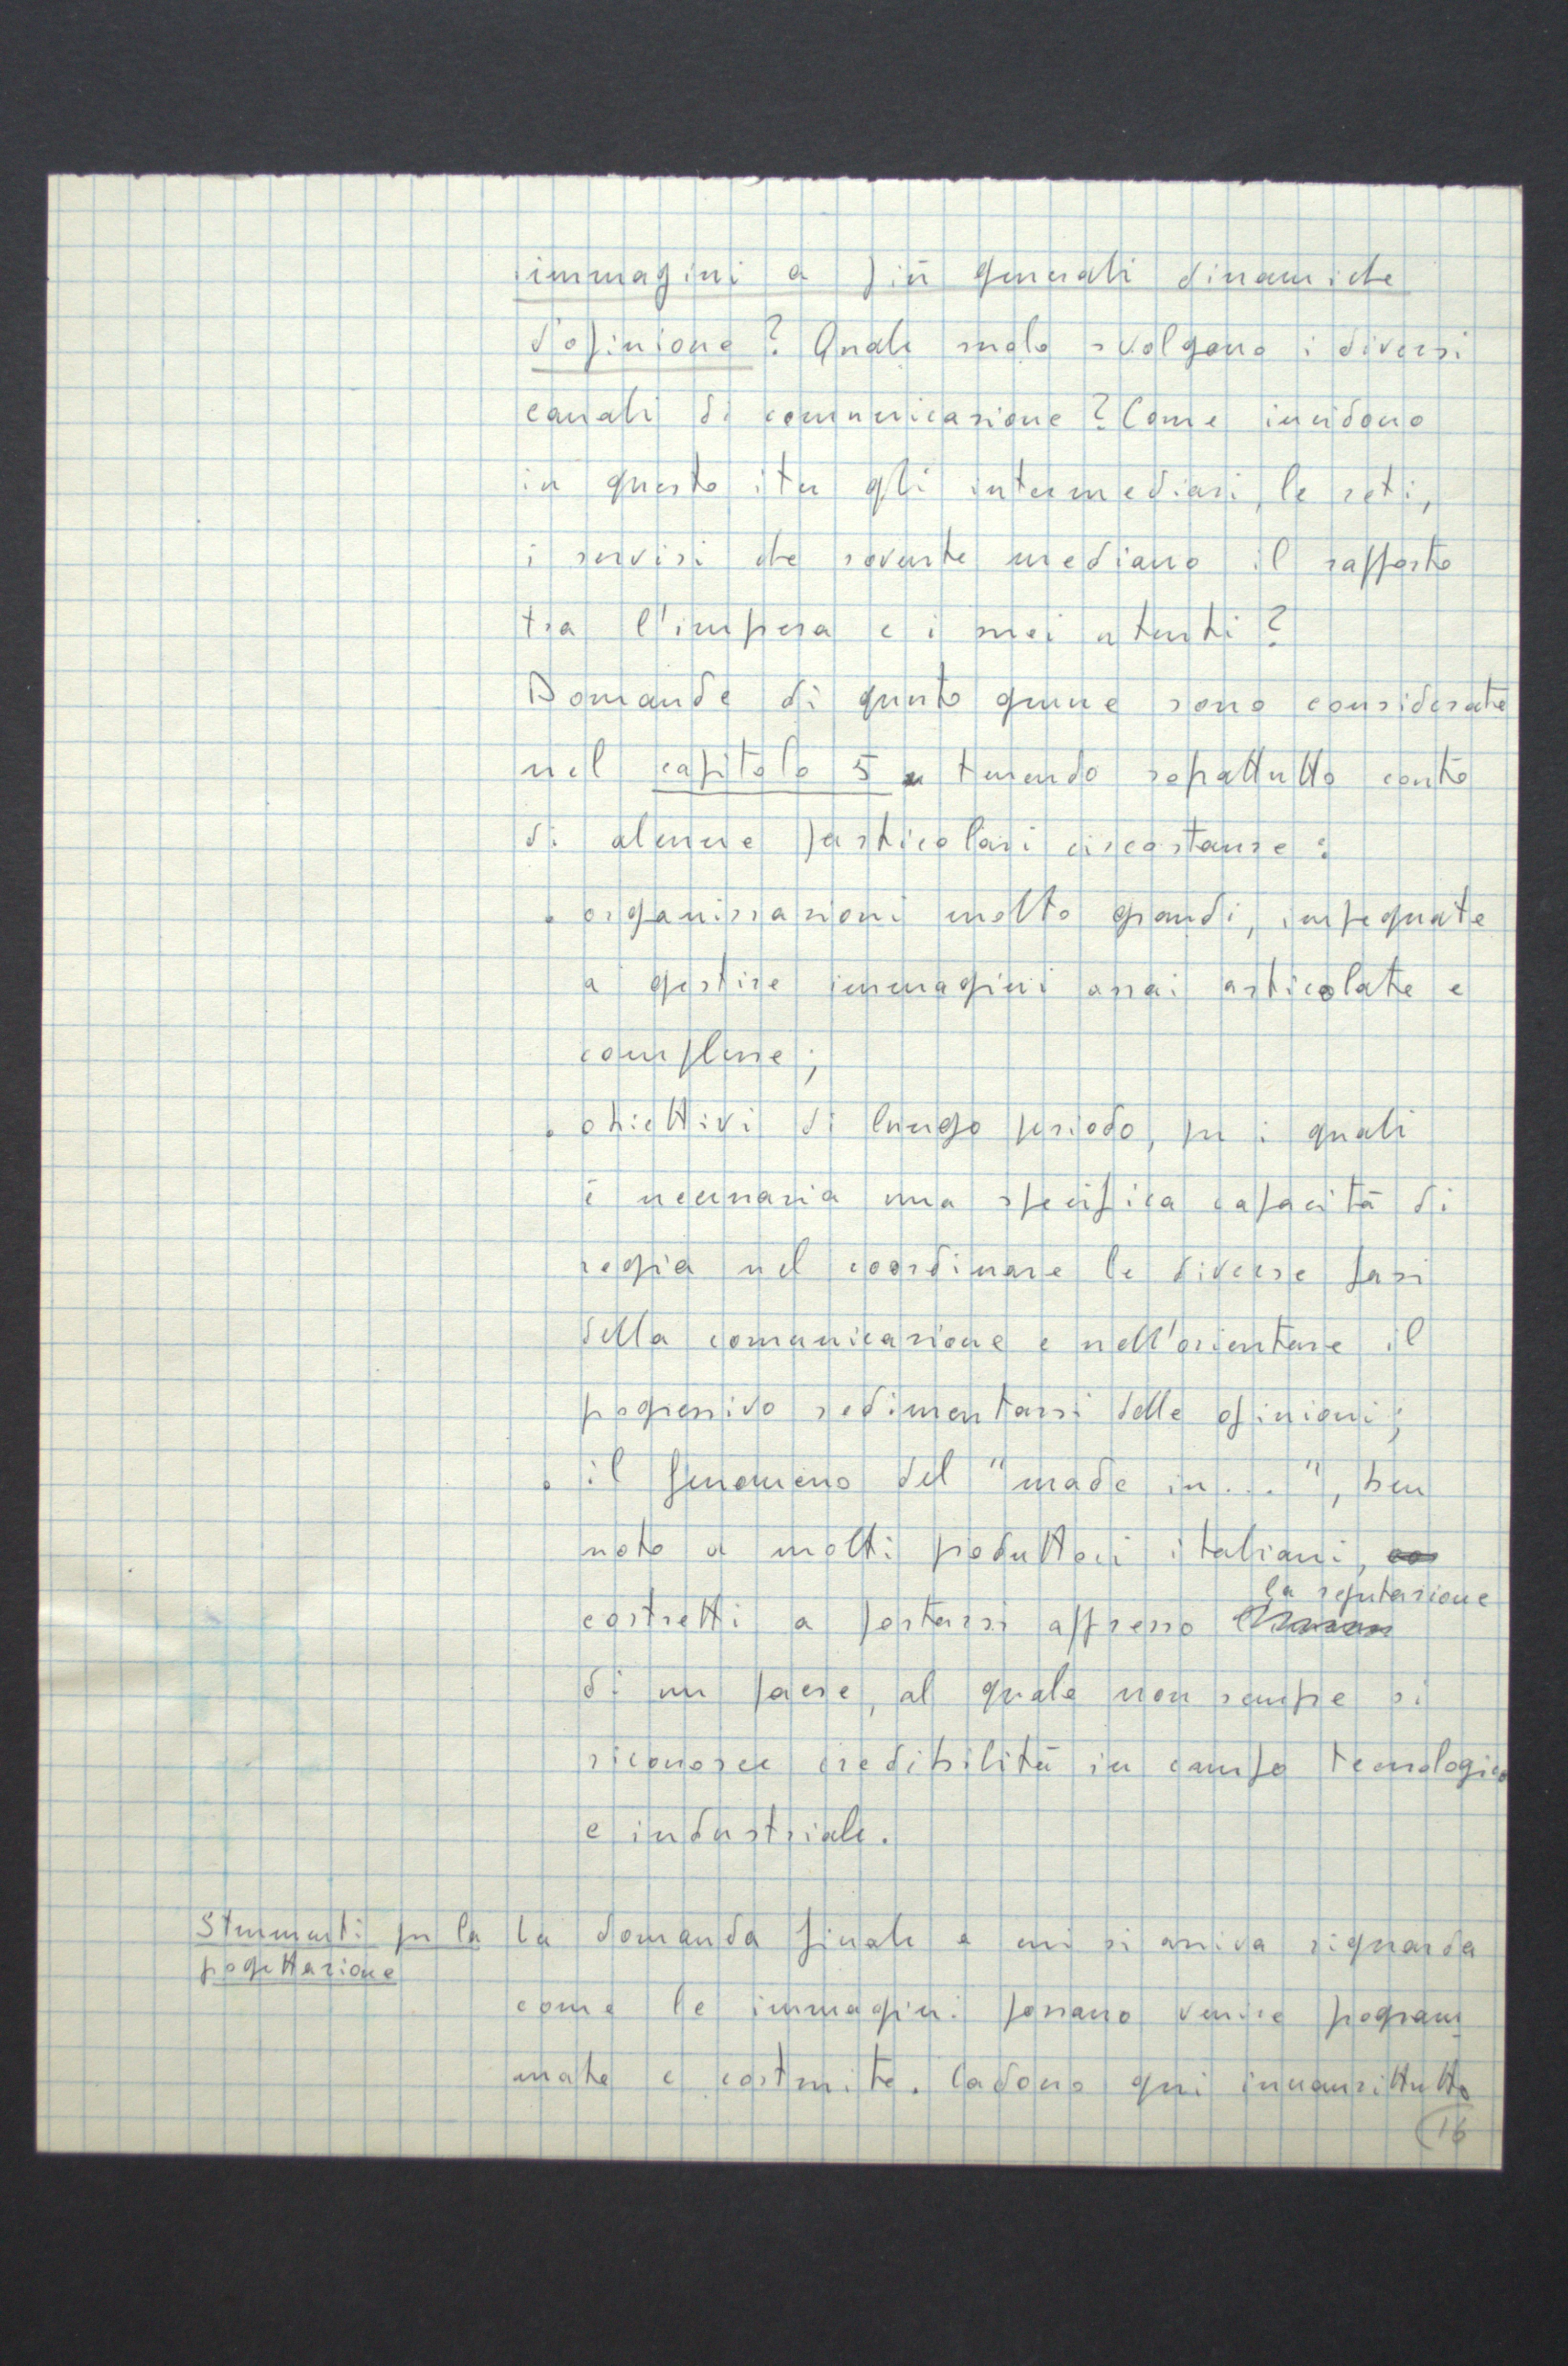 immagini a più generali dinamiche
d'opinione? Quale ruolo svolgono i diversi
canali di comunicazione? Come incidono
in questo iter gli intermediari, le reti,
i servizi che sovente mediano il rapporto
tra l'impresa e i suoi utenti?
Domande di questo genere sono considerate
nel capitolo 5 tenendo soprattutto conto
di alcune particolari circostanze:
• organizzazioni molto grandi, impegnate
a gestire immagini assai articolate e
complesse;
• obiettivi di lungo periodo, per i quali
è necessaria una specifica capacità di
regia nel coordinare le diverse fasi
della comunicazione e nell'orientare il
progressivo sedimentarsi delle opinioni;
• il fenomeno del "made in...", ben
noto a molti produttori italiani,
la reputazione
costretti a portarsi appresso
di un paese, al quale non sempre si
riconosce credibilità in campo tecnologico
e industriale.
Strumenti per la
progettazione
La domanda finale a cui si arriva riguarda
come le immagini possano venire program
mate e costruite. Cadono qui innanzitutto
16